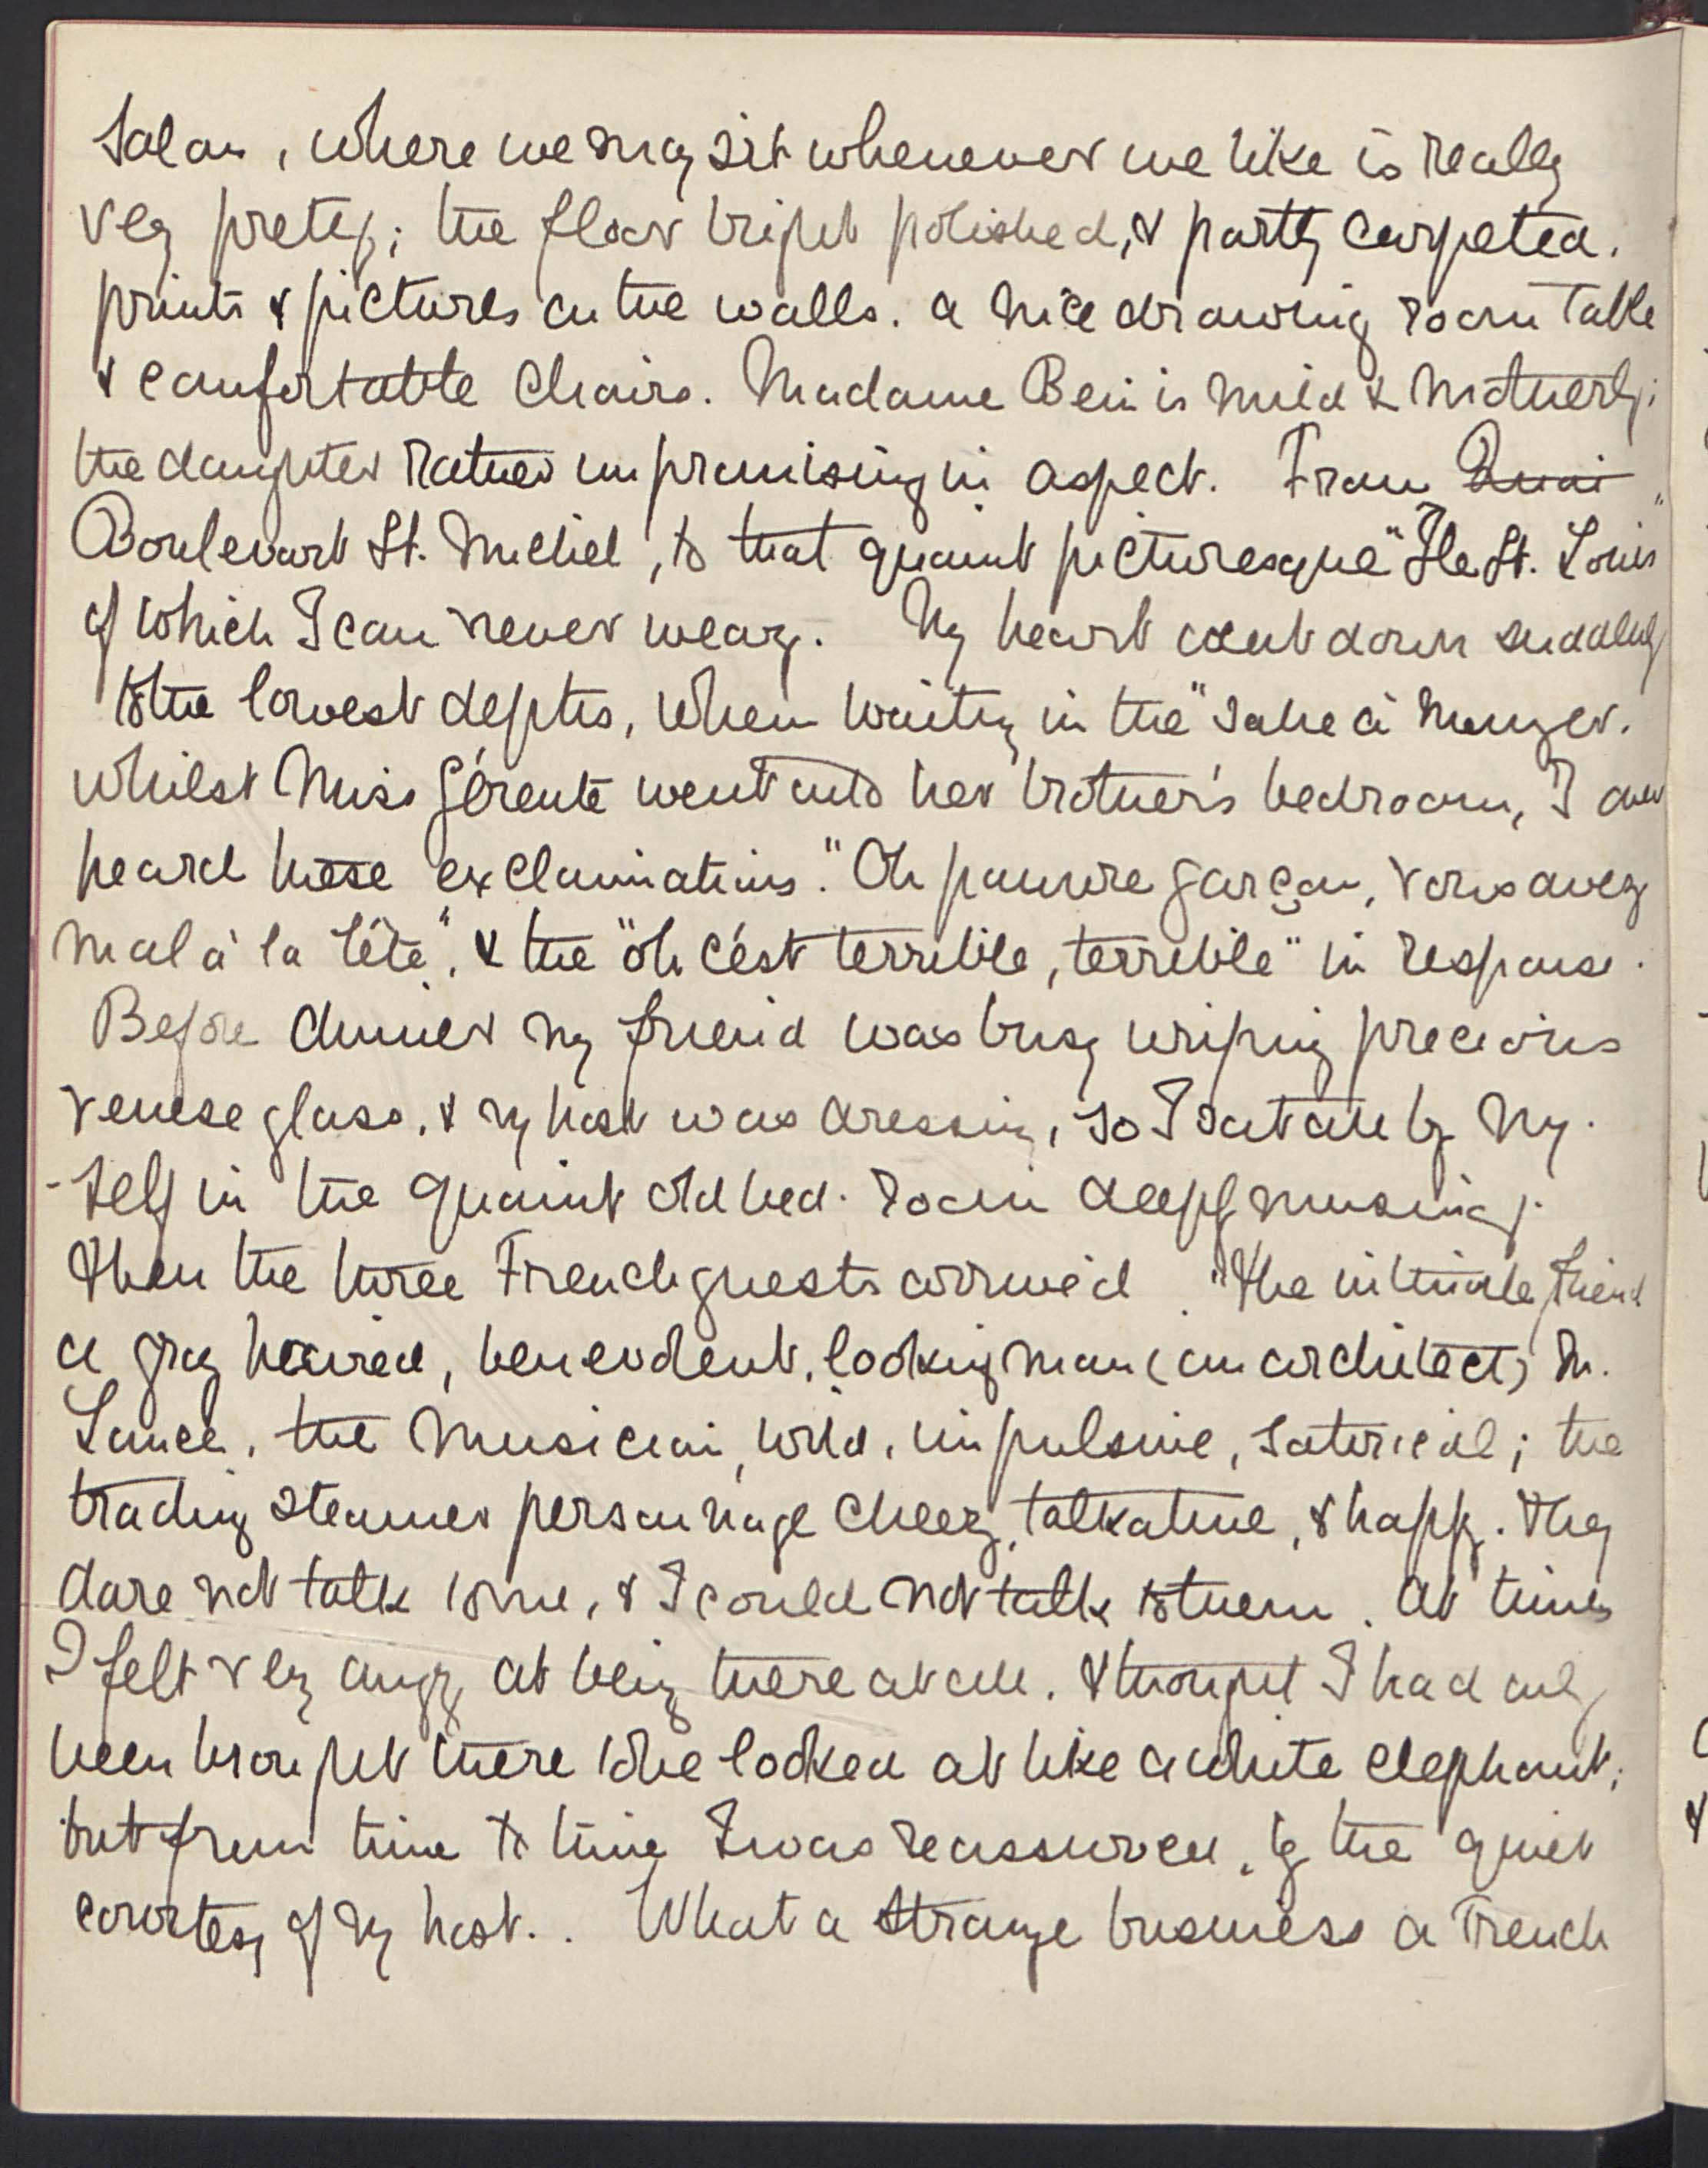 Salon, where we may sit whenever we like is really
very pretty; the floor bright polished, & partly carpeted.
prints & pictures on the walls. a nice drawing room table
& comfortable chairs. Madame Bein is mild & motherly;
the daughter rather unpromising in aspect. From Quai
Boulevart St. Michel, to that quaint picturesque "Ile St. Louis"
of which I can never weary. My heart went down suddenly
to the lowest depths, when waiting in the "salle à manger.
whilst Miss Gérente went into her brother's bedroom, I over
heard these exclamations. "Oh pauvre garçon, vous avez
mal à la tête", & the "oh c'est terrible, terrible" in response.
Before dinner my friend was busy wiping precious
Venise glass, & my host was dressing, so I sat all by my-
-self in the quaint old bed-room deeply musing.
Then the three French guests arrived. "The intimate friend
a gray haired, benevolent, looking man (an architect) M.
Lance, the musician, wild, impulsive, satirical; the
trading steamer personage cheery, talkative, & happy. They
dare not talk to me, & I could not talk to them. At times
I felt very angry at being there at all. & thought I had only
been brought there to be looked at like a white elephant;
but from time to time I was reassured, by the quiet
courtesy of my host.. What a strange business a French